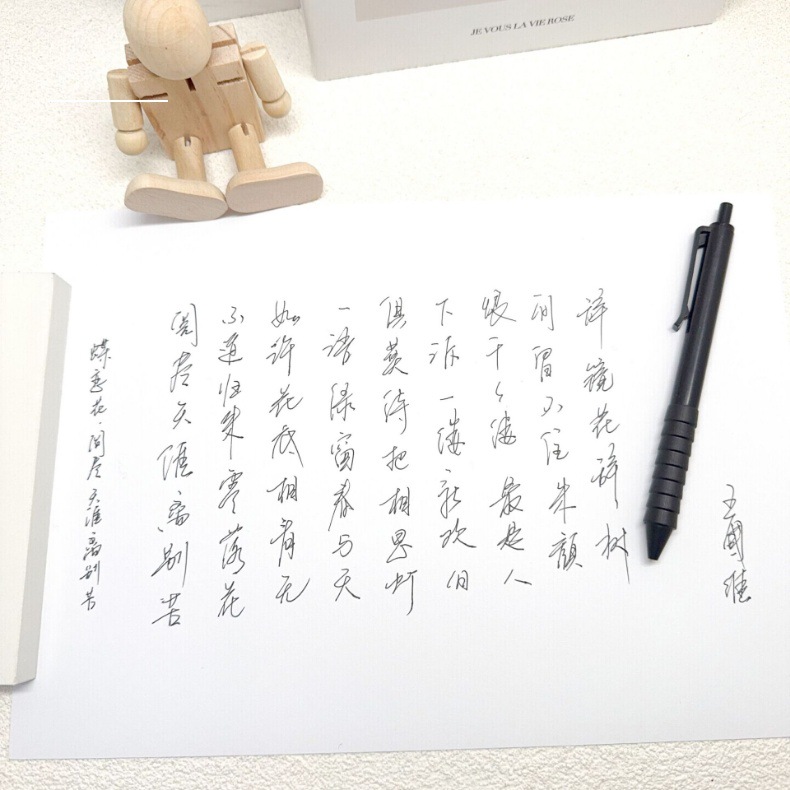 蝶恋花·阅尽天涯离别苦
阅尽天涯离别苦
不道归来零落花
如许花底相看无
一语绿窗春与天
俱莫待把相思灯
下诉一缕新欢旧
恨千々缕 最是人
间留不住朱颜
辞镜花辞树
王國維
JE VOUS LA VIE ROSE